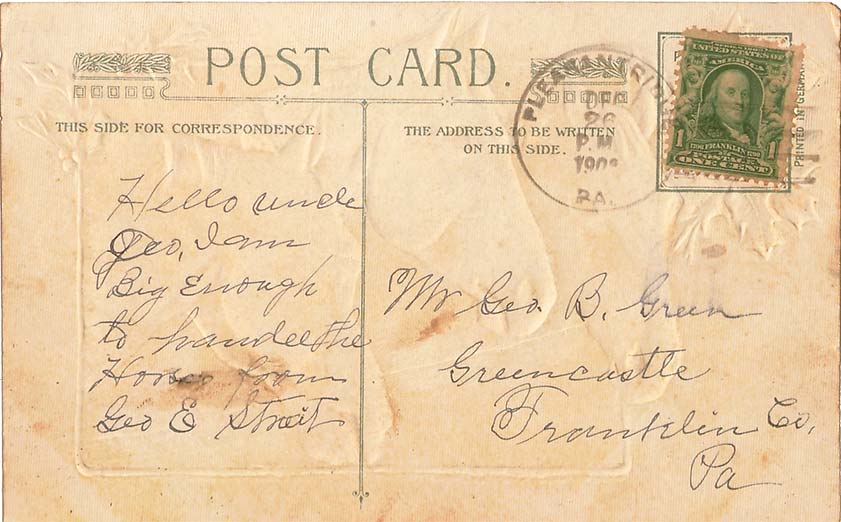 POST CARD.
THIS SIDE FOR CORRESPONDENCE.
THE ADDRESS TO BE WRITTEN
ON THIS SIDE.
Hello uncle
Geo, I am
Big Enough
to handle the
Horses from
Geo E Strait
Mr Geo. B. Green
Greencastle
Franklin Co,
Pa
DEC
26
P.M.
PA.
UNITED STATES OF
AMERICA
1 FRANKLIN 1
POSTAGE
ONE CENT
PRINTED IN GERMANY